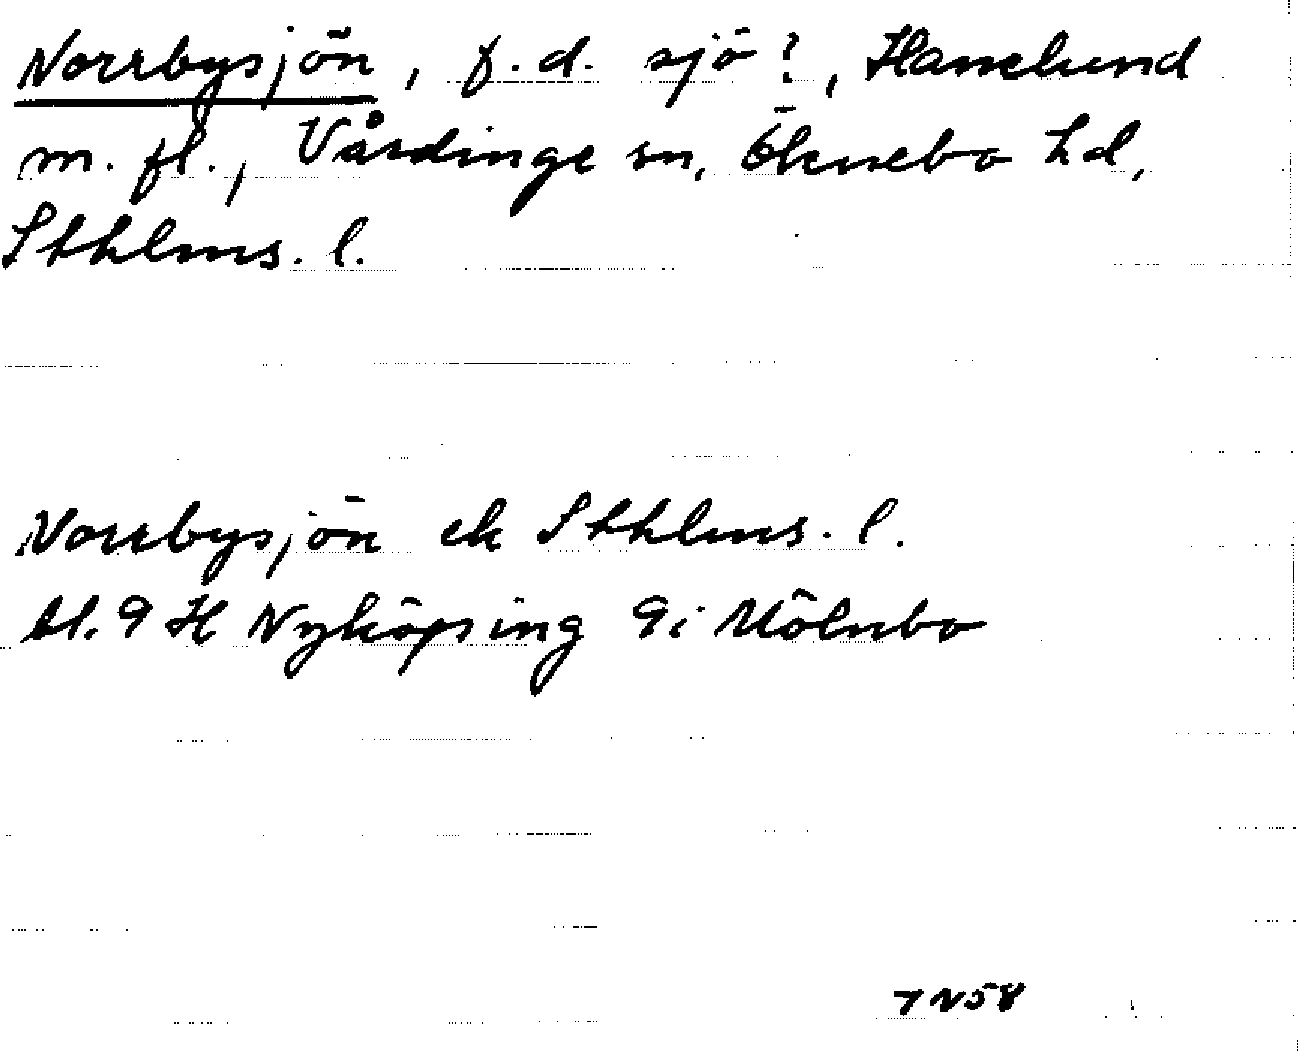 Norrbysjön, f.d. sjö?, Hanelund
m. fl., Vårdinge sn, Öknebo hd,
Sthlms. l.
Norrbysjön ek Sthlms. l.
bl. 9 H Nyköping 9i Mölnbo
TN58